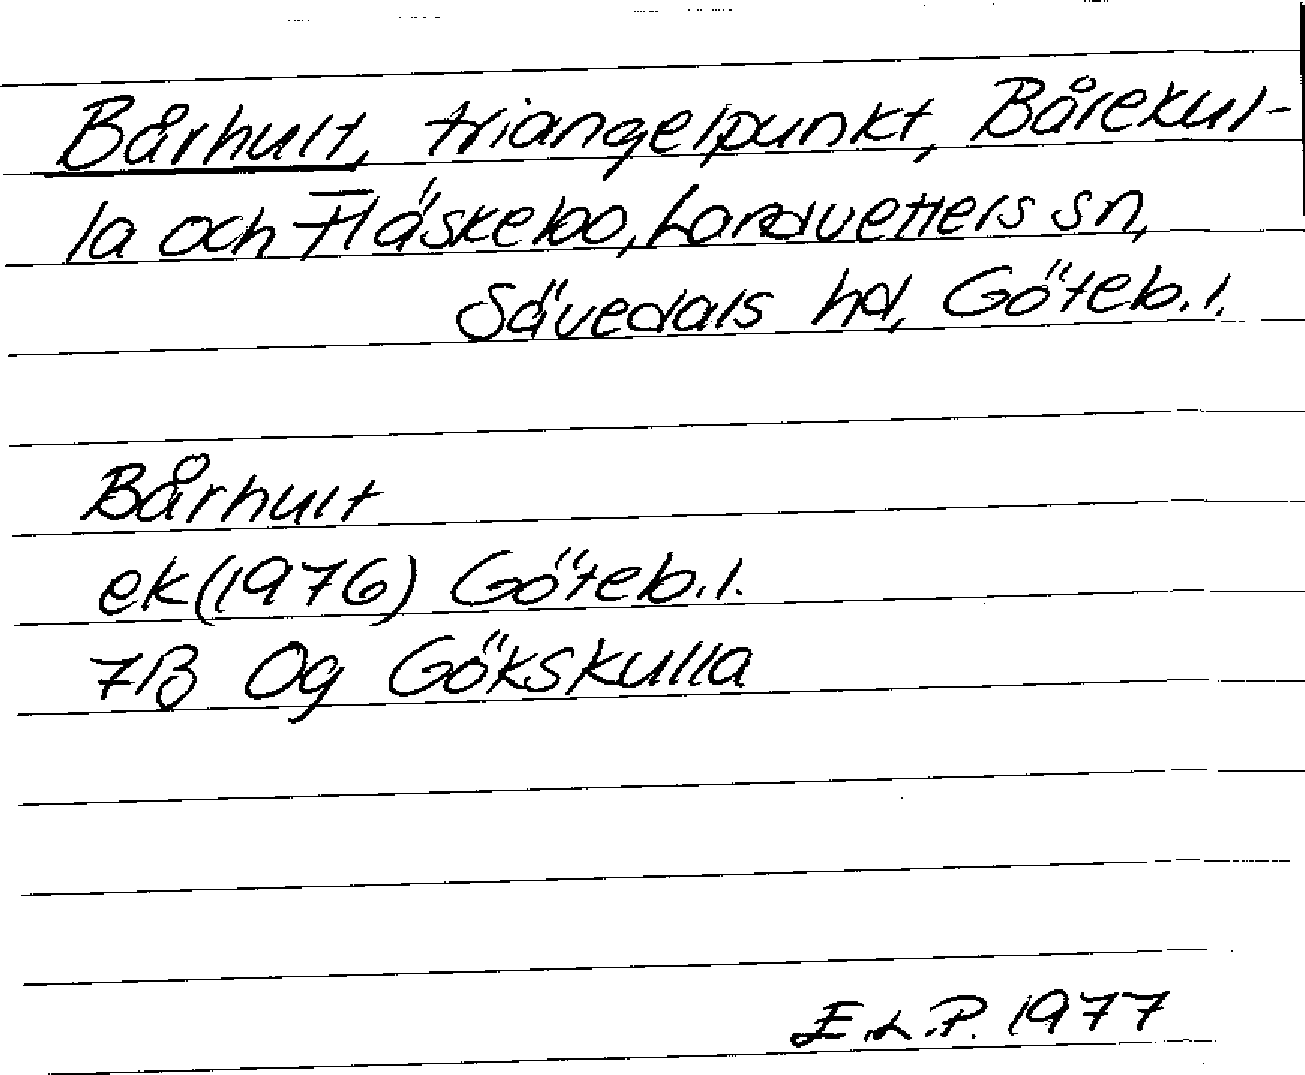 Bårhult, triangelpunkt, Bårekul-
la och Fläskebo, Landvetters sn,
Sävedals hd, Göteb. l.
Bårhult
ek (1976) Göteb. l.
7B 0g Gökskulla
E.L.P. 1977